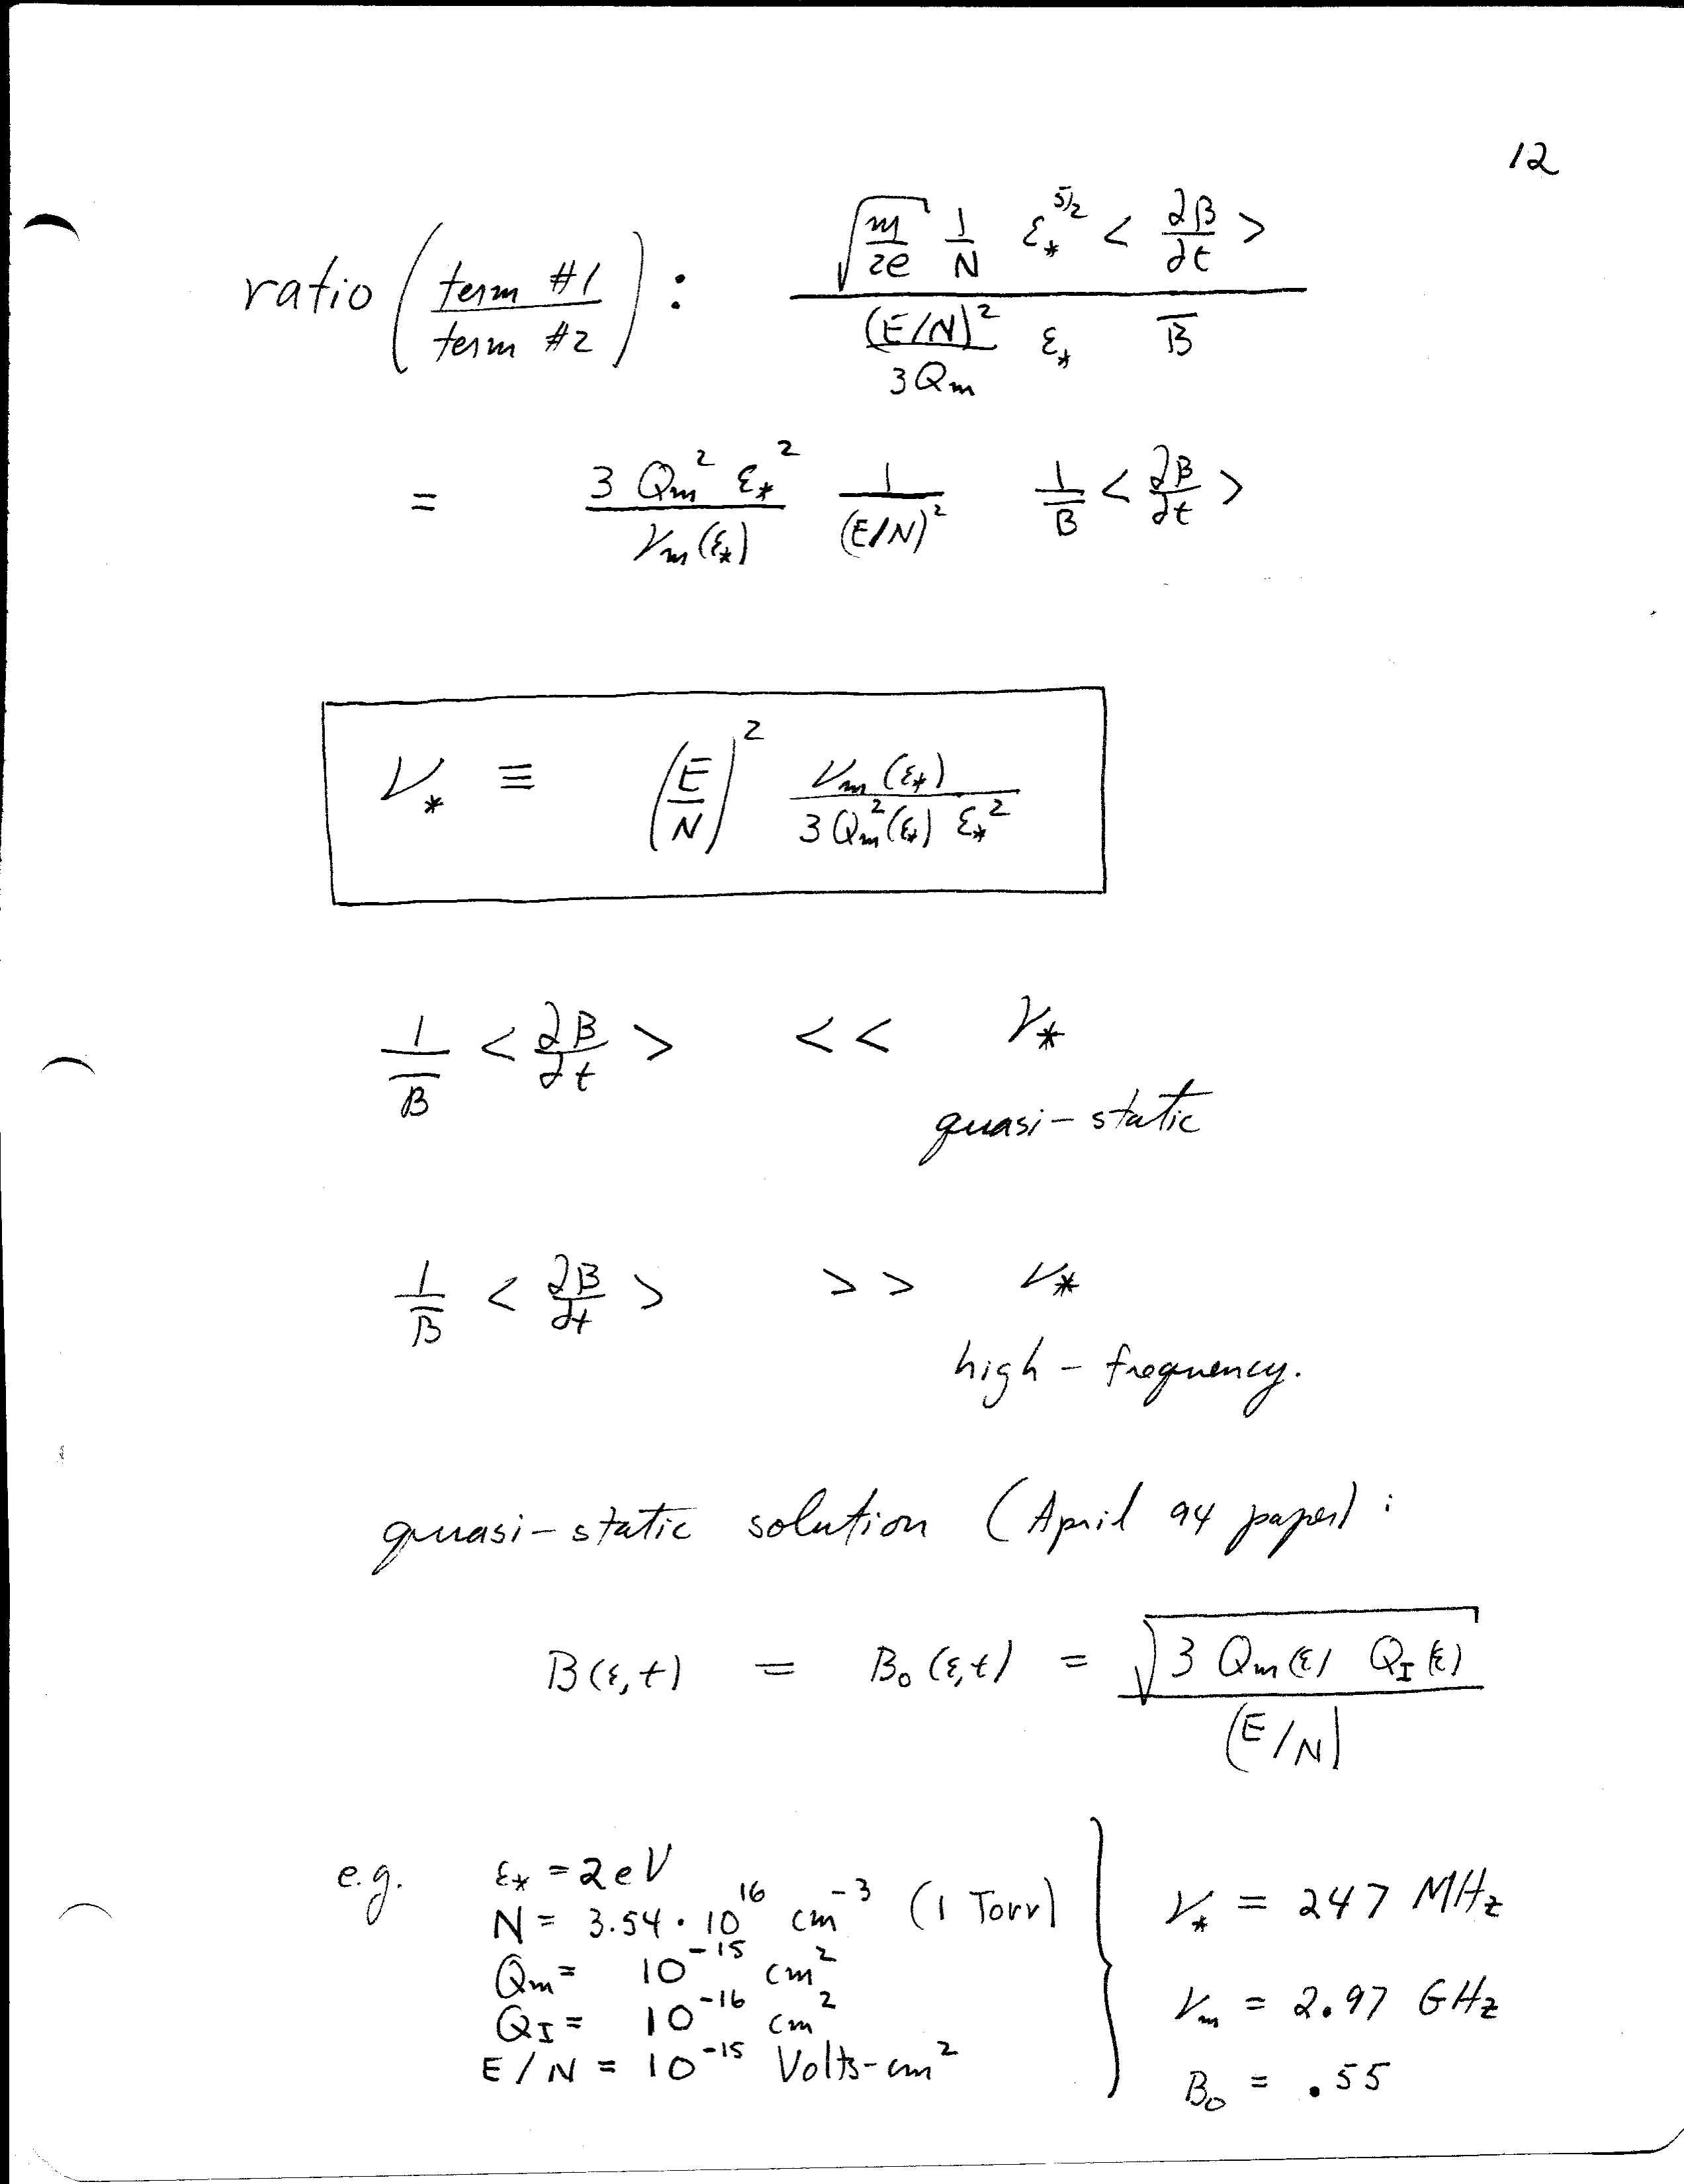 12
ratio (term #1 / term #2) : √(m/2e) 1/N ε*^5/2 < ∂B/∂t > / ((E/N)^2 / 3Qm) ε* B̅
= 3 Qm^2 ε*^2 / νm(ε*) 1/(E/N)^2 1/B̅ < ∂B/∂t >
ν* ≡ (E/N)^2 νm(ε*) / 3 Qm^2(ε*) ε*^2
1/B̅ < ∂B/∂t > << ν*
quasi-static
1/B̅ < ∂B/∂t > >> ν*
high-frequency.
quasi-static solution (April 94 paper) :
B(ε,t) = B₀(ε,t) = √(3 Qm(ε) Q_I(ε)) / (E/N)
e.g. ε* = 2eV
N = 3.54 · 10^16 cm^-3 (1 Torr)
Qm = 10^-15 cm^2
Q_I = 10^-16 cm^2
E/N = 10^-15 Volts-cm^2
ν* = 247 MHz
νm = 2.97 GHz
B₀ = .55